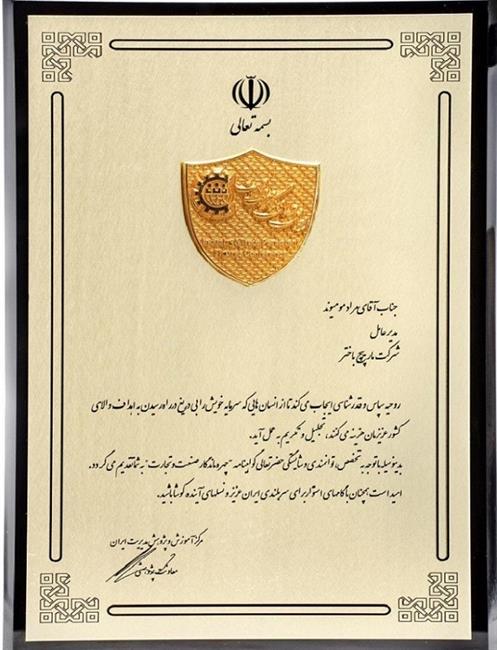 بسمه تعالی
جناب آقای مهراد مومیوند
مدیر عامل
شرکت مارپیچ باختر
روحیه سپاس و قدرشناسی ایجاب می کند تا از انسان هایی که سرمایه خویش را بی دریغ در راه رسیدن به اهداف والای
کشور عزیزمان هزینه می کنند، تجلیل و تکریم به عمل آید.
بدینوسیله با توجه به تخصص، توانمندی و شایستگی حضرتعالی گواهینامه "چهره ماندگار صنعت و تجارت" به شما تقدیم می گردد.
امید است همچنان با گامهای استوار برای سربلندی ایران عزیز و نسلهای آینده کوشا باشید.
مرکز آموزش و پژوهش مدیریت ایران
معاونت پژوهشی